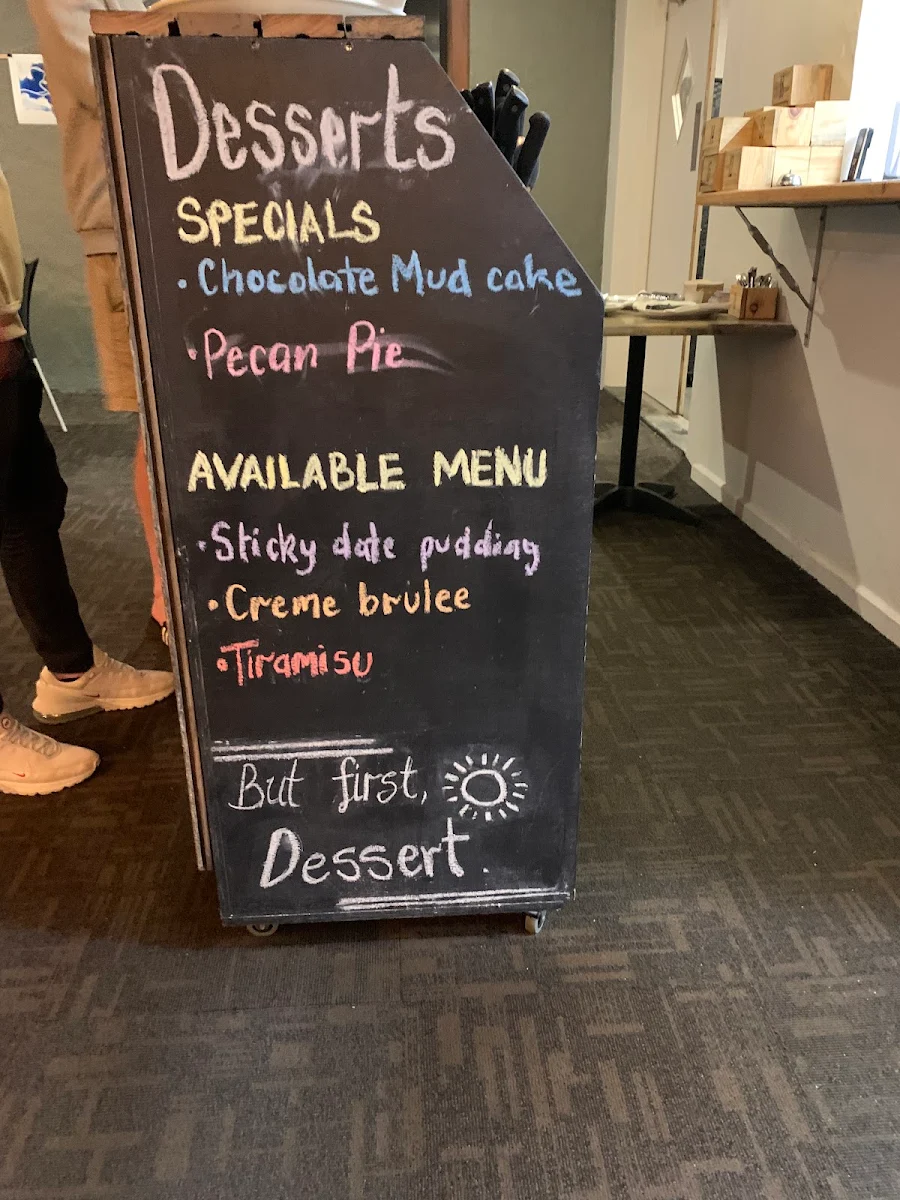 Desserts
SPECIALS
· Chocolate Mud cake
· Pecan Pie
AVAILABLE MENU
· Sticky date pudding
· Creme brulee
· Tiramisu
But first,
Dessert.